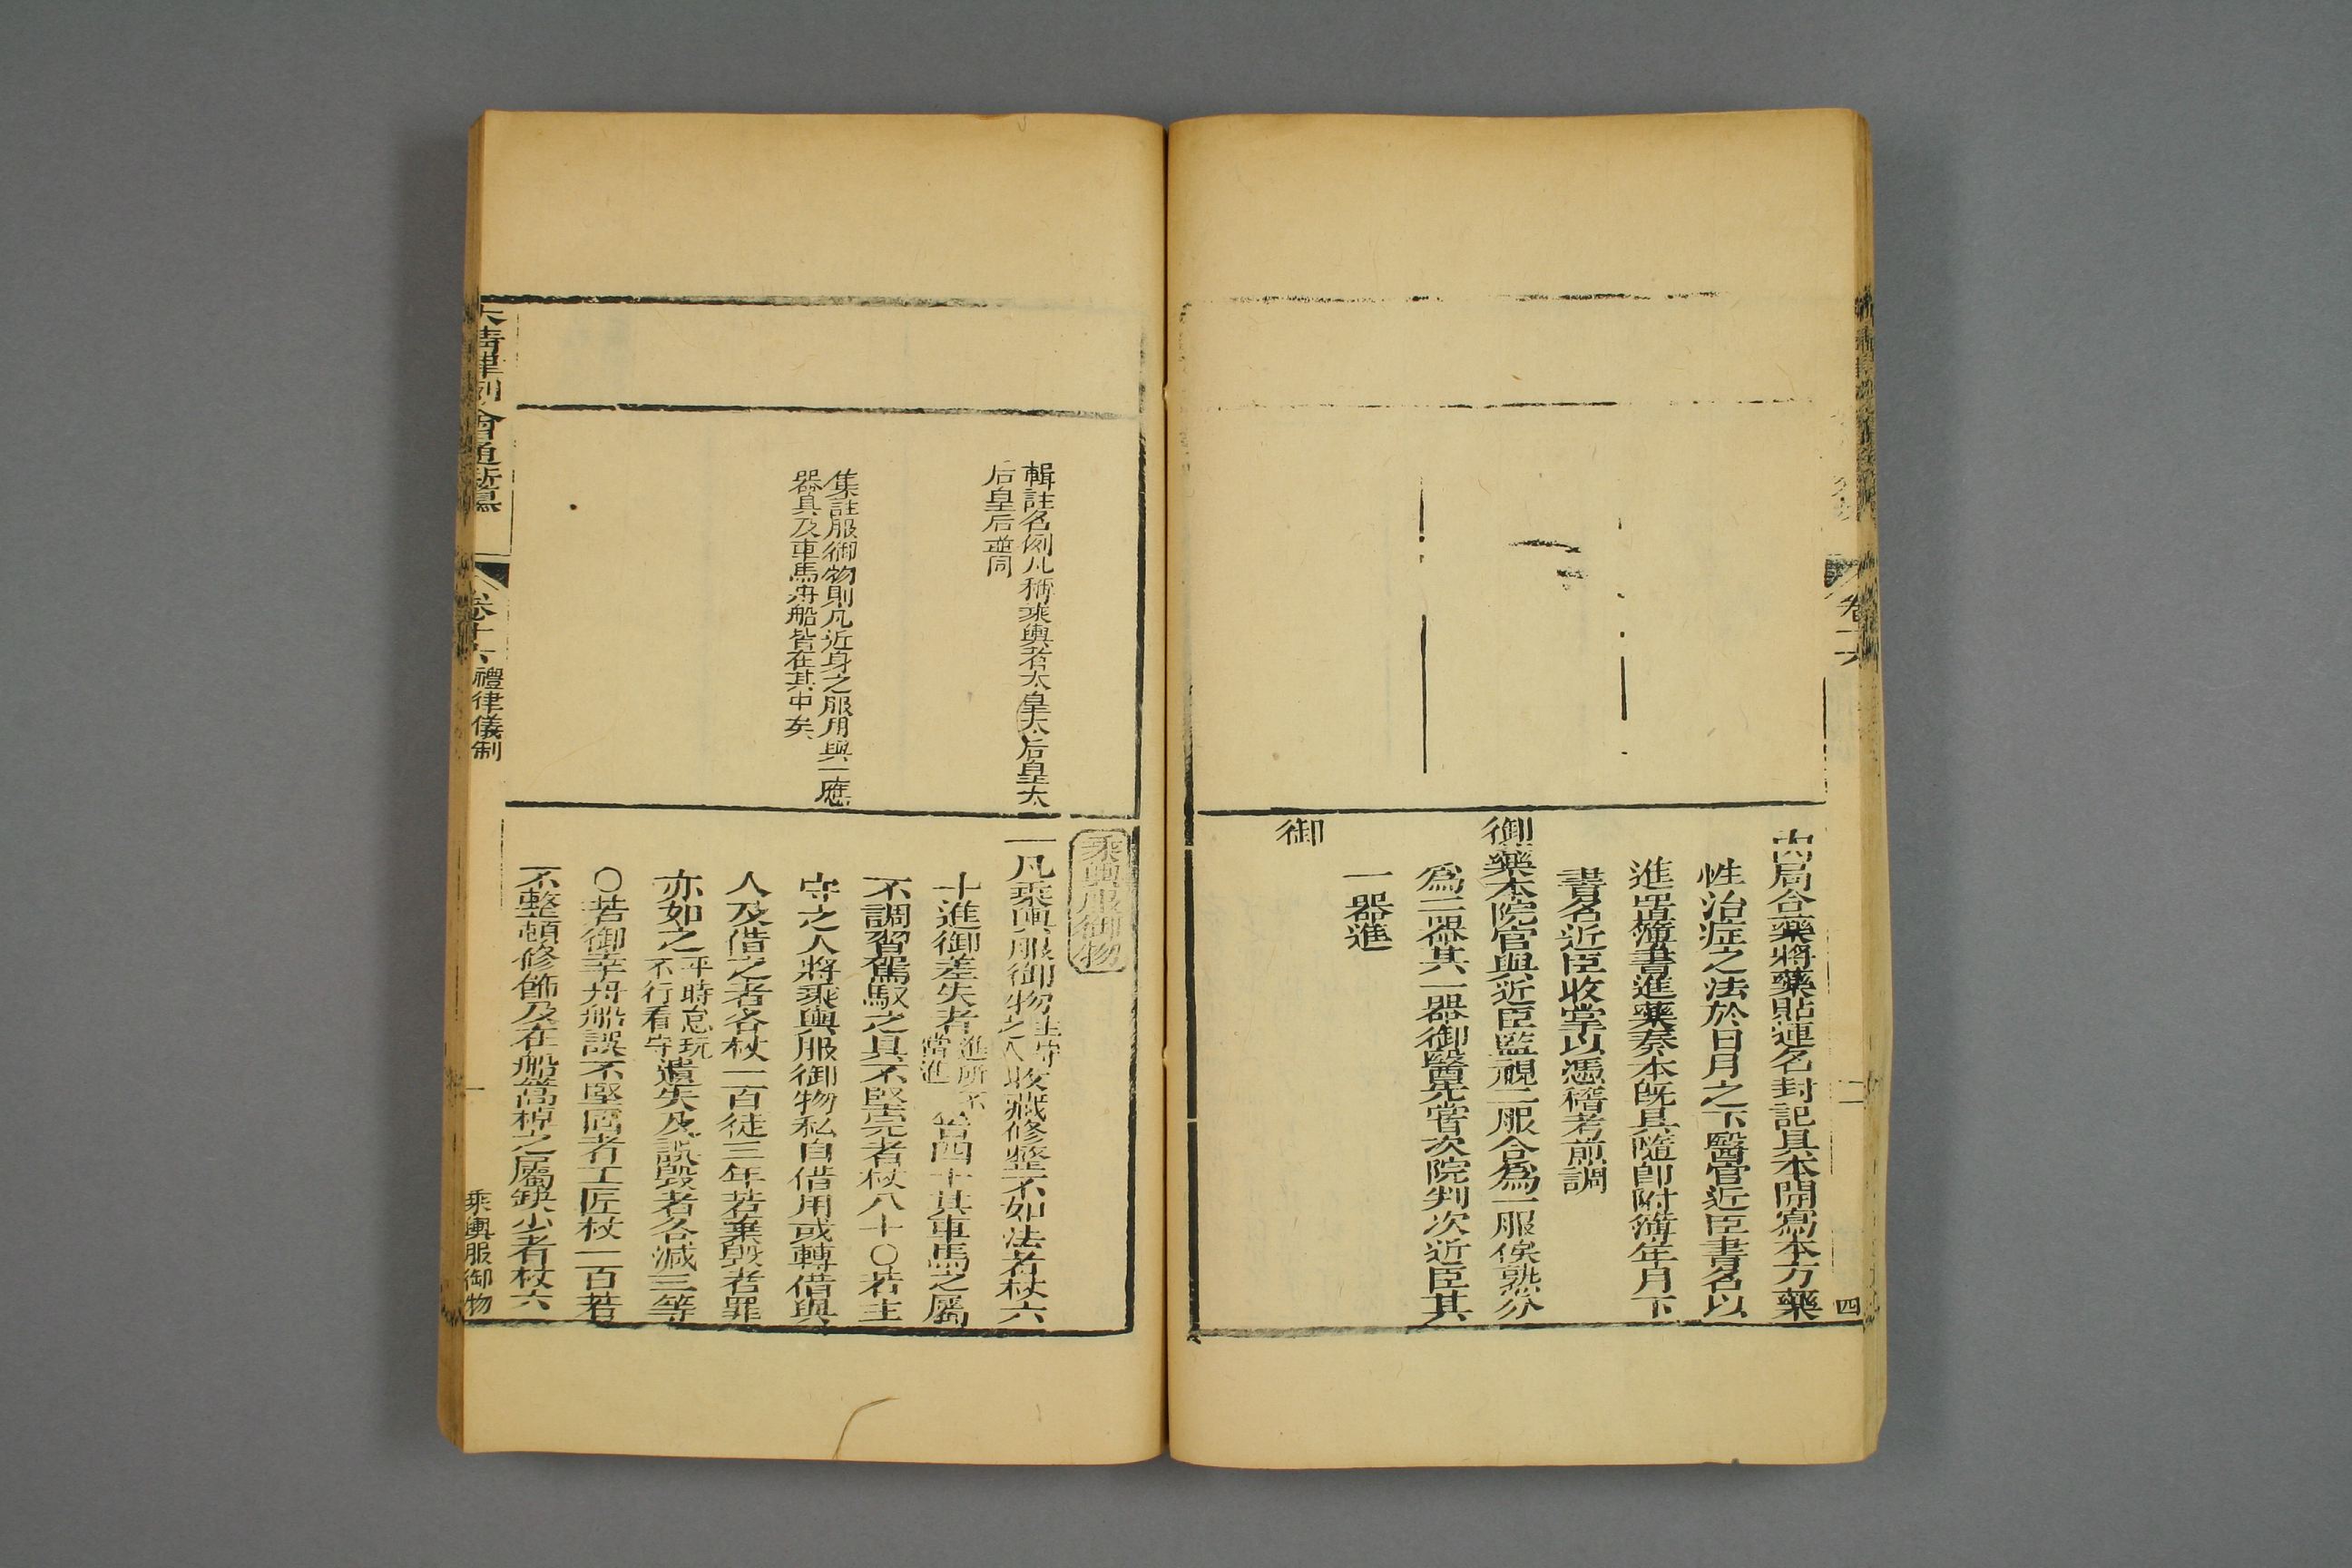 內局合藥將藥貼連名封記具本開寫本方藥
性治症之法於日月之下醫官近臣書名以
進置簿書進藥奏本旣具隨卽附簿年月下
書名近臣收掌以憑稽考煎調
御藥本院官與近臣監視二服合爲一服俟熟分
爲二器其一器御醫先嘗次院判次近臣其
一器進
御
卷十六
四
乘輿服御物
一凡乘輿服御物主守之人收藏修整不如法者杖六
十進御差失者進所不當進笞四十其車馬之屬
不調習駕馭之具不堅完者杖八十〇若主
守之人將乘輿服御物私自借用或轉借與
人及借之者各杖一百徒三年若棄毀者罪
亦如之平時怠玩不行看守遺失及誤毀者各減三等
〇若御幸舟船誤不堅固者工匠杖一百若
不整頓修飾及在船篙棹之屬缺少者杖六
輯註名例凡稱乘輿若太皇太后皇太
后皇后並同
集註服御物則凡近身之服用與一應
器具及車馬舟船皆在其中矣
大清律例會通新纂
卷十六
禮律儀制
乘輿服御物